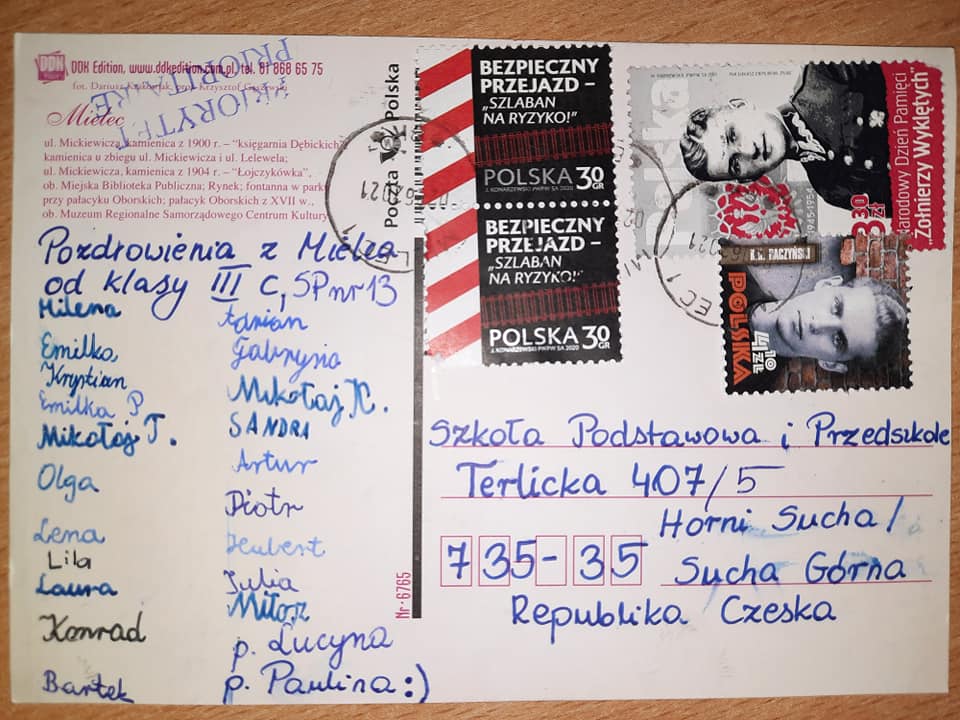 DDK Edition, www.ddkedition.com.pl, tel. 61 868 65 75
fot. Dariusz prof. Krzysztof
PRIORITAIRE
PRIORYTET
Mielec
ul. Mickiewicza, kamienica z 1900 r. – "księgarnia Dębickich",
kamienica u zbiegu ul. Mickiewicza i ul. Lelewela;
ul. Mickiewicza, kamienica z 1904 r. – "Łojczykówka",
ob. Miejska Biblioteka Publiczna; Rynek; fontanna w parku
przy pałacyku Oborskich; pałacyk Oborskich z XVII w.,
ob. Muzeum Regionalne Samorządowego Centrum Kultury
Pozdrowienia z Mielca
od klasy III C, SP nr 13
Milena
Emilka
Krystian
Emilka P.
Mikołaj T.
Olga
Lena
Lila
Laura
Konrad
Bartek
Adrian
Gabrysia
Mikołaj K.
SANDRA
Artur
Piotr
Hubert
Julia
Miłosz
p. Lucyna
p. Paulina :)
Nr · 6765
Poczta Polska
BEZPIECZNY
PRZEJAZD –
„SZLABAN
NA RYZYKO!"
POLSKA 30 GR
J. KONARZEWSKI PWPW SA 2020
BEZPIECZNY
PRZEJAZD –
„SZLABAN
NA RYZYKO!"
POLSKA 30 GR
J. KONARZEWSKI PWPW SA 2020
Polska
1945-1954
Narodowy Dzień Pamięci
"Żołnierzy Wyklętych"
3,30 zł
K.K. BACZYŃSKI
POLSKA
4,10 ZŁ
EC 1
Szkoła Podstawowa i Przedszkole
Terlicka 407/5
Horni Sucha/
735-35 Sucha Górna
Republika Czeska